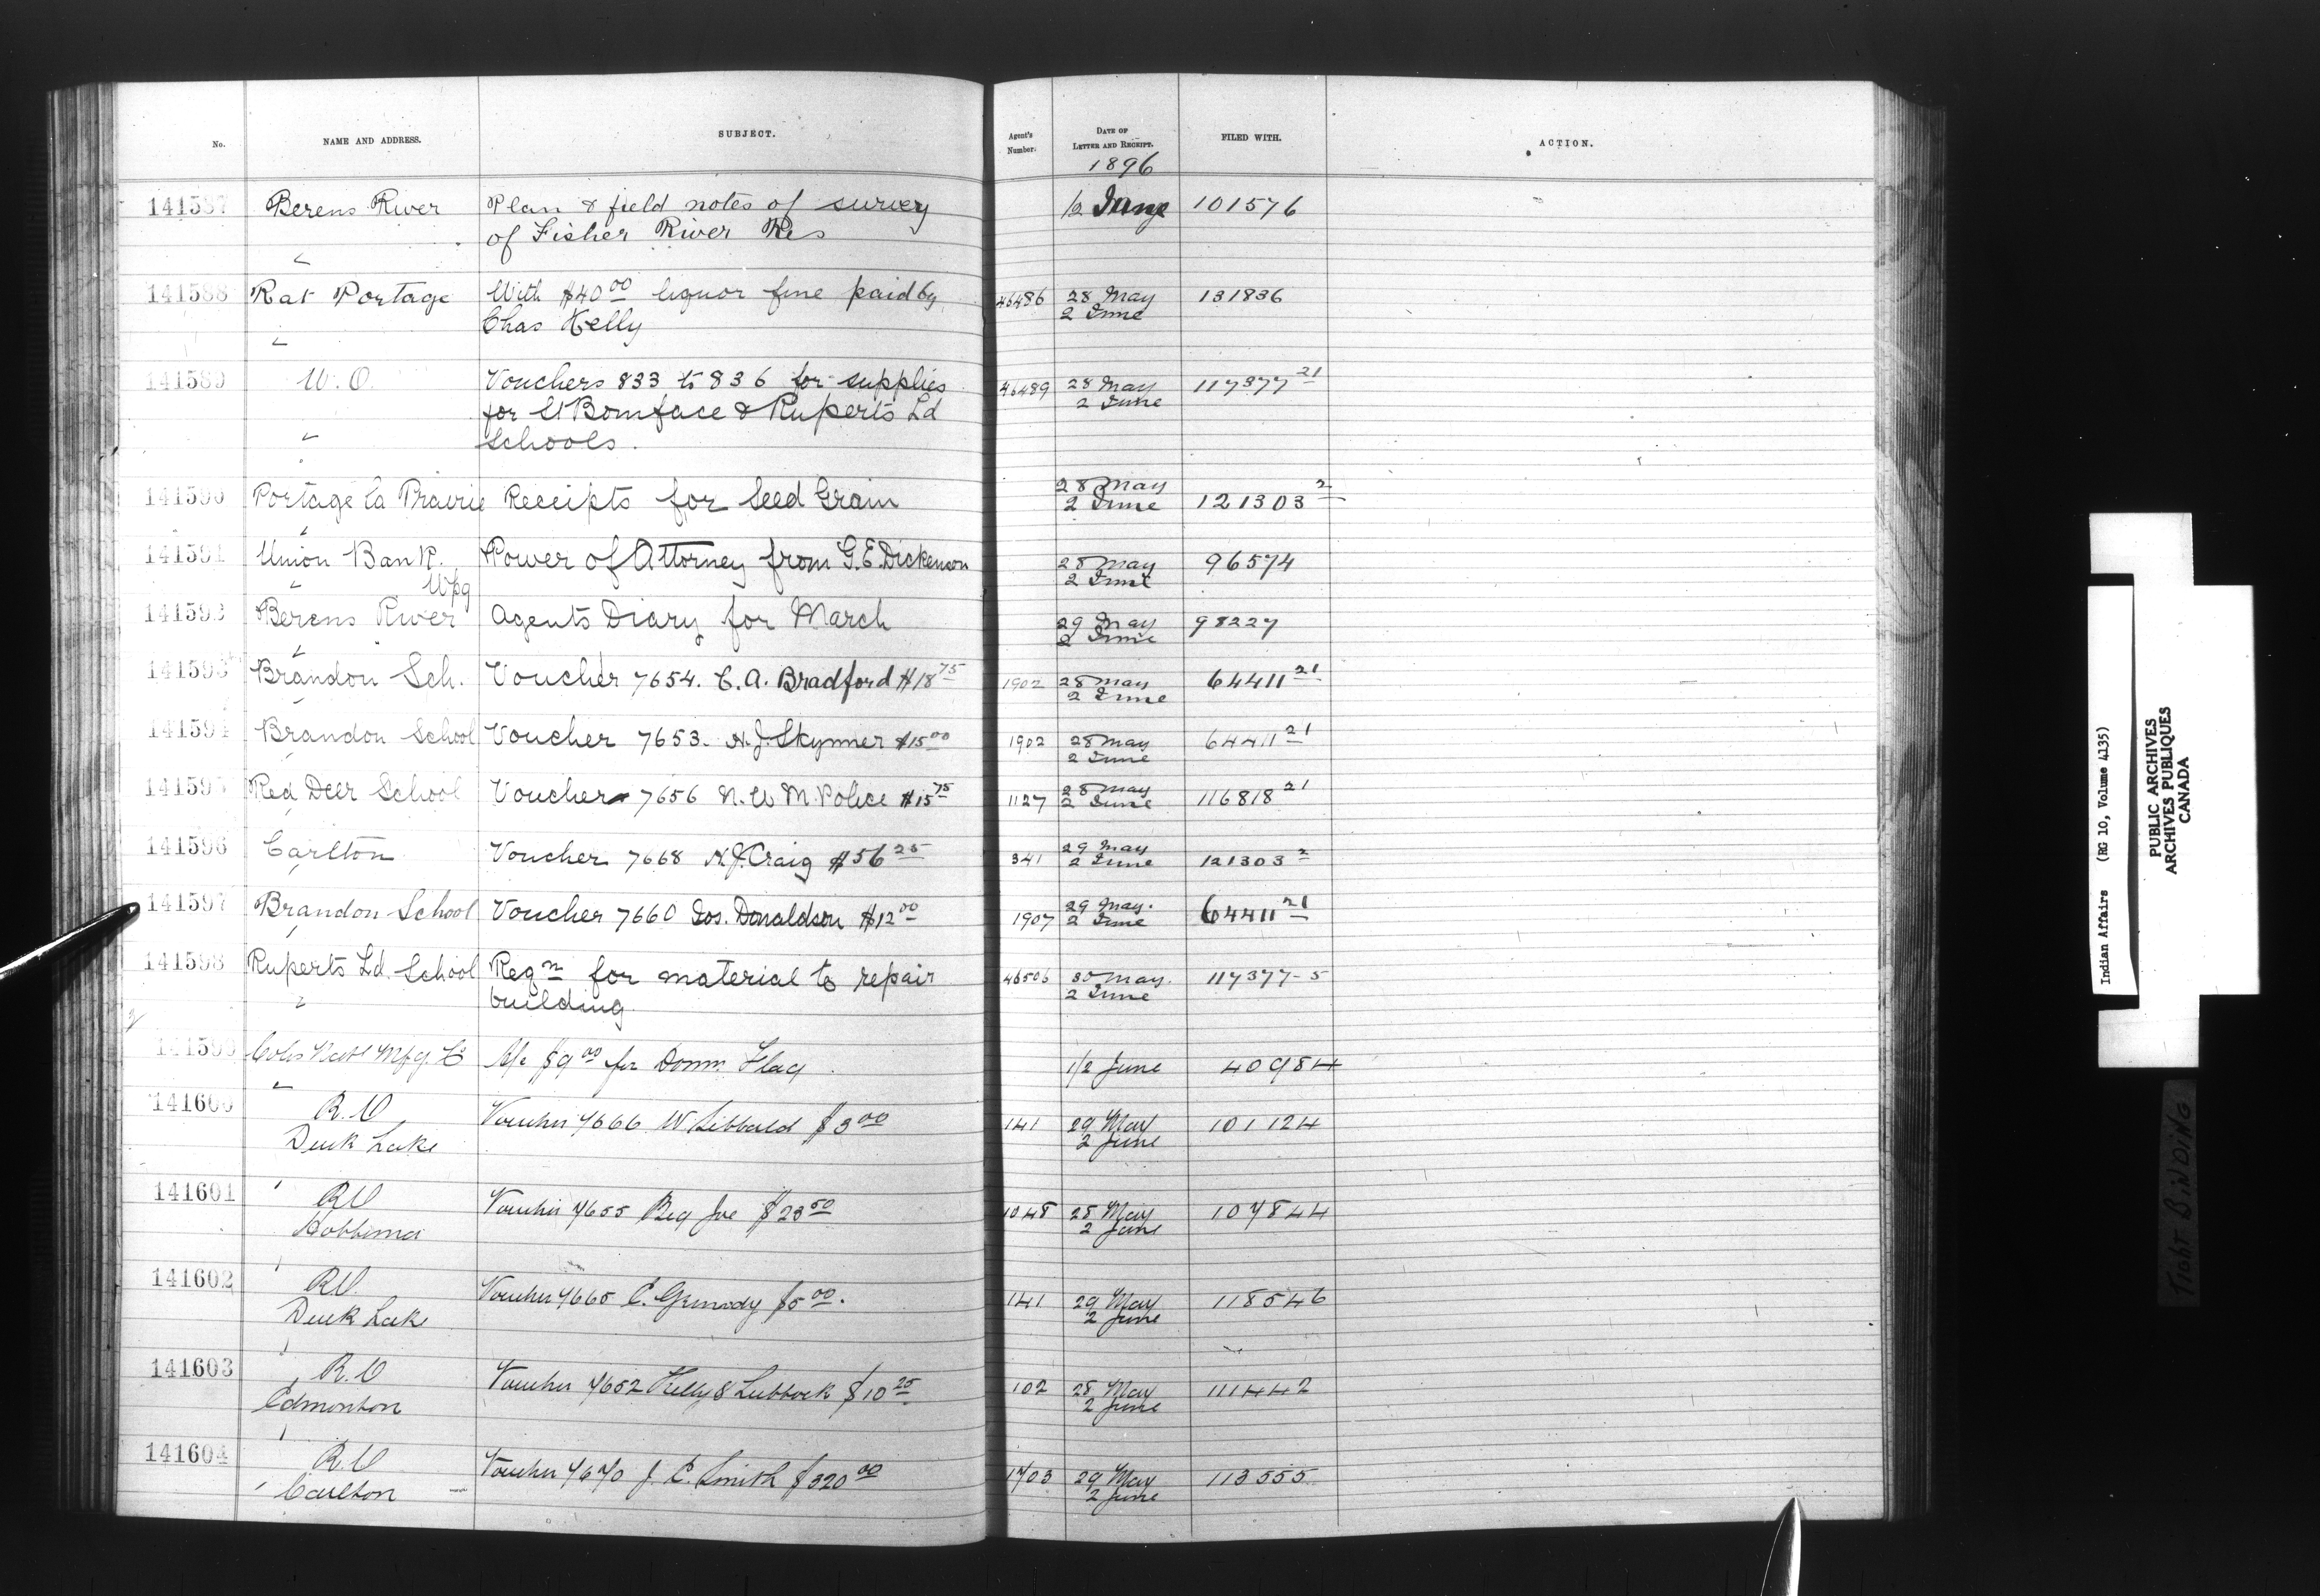 No. NAME AND ADDRESS. SUBJECT. Agent's Number. DATE OF LETTER AND RECEIPT. FILED WITH. ACTION.
1896
141587 Berens River Plan & field notes of survey 1/2 June 101576
of Fisher River Res
141588 Rat Portage With $40 00 liquor fine paid by 46486 28 May 131836
Chas Kelly 2 June
141589 W. O. Vouchers 833 to 836 for supplies 46489 28 May 117377 21
for St Boniface & Ruperts Ld 2 June
Schools.
141590 Portage la Prairie Receipts for Seed Grain 28 May 121303 2
2 June
141591 Union Bank. Power of Attorney from G.E. Dickenson 28 May 96574
Wpg 2 June
141592 Berens River Agents Diary for March 29 May 98227
2 June
141593 Brandon Sch. Voucher 7654. C.A. Bradford $18 75 1902 28 May 64411 21
2 June
141594 Brandon School Voucher 7653. H.J. Skynner $15 00 1902 28 May 64411 21
2 June
141595 Red Deer School Voucher 7656 N.W.M. Police $15 75 1127 28 May 116818 21
2 June
141596 Carlton Voucher 7668 H.J. Craig $56 25 341 29 May 121303 2
2 June
141597 Brandon School Voucher 7660 Jos. Donaldson $12 00 1907 29 May. 64411 21
2 June
141598 Ruperts Ld. School Reqn for material to repair 46506 30 May. 117377-5
building 2 June
141599 Mfg. Co A/c $9 00 for Domn. Flag 1/2 June 40984
141600 R.O Voucher 7666 W Sibbald $3 00 141 29 May 101124
Duck Lake 2 June
141601 R.O Voucher 7655 Joe $23 50 1048 28 May 107844
Hobbema 2 June
141602 R.O. Voucher 7665 C. $5 00. 141 29 May 118546
Duck Lake 2 June
141603 R.O Voucher 7652 Kelly & Lubbock $10 25 102 28 May 111442
Edmonton 2 June
141604 R.O Voucher 7670 J. C. Smith $320 00 1703 29 May 113555
Carlton 2 June
Indian Affairs (RG 10, Volume 4135)
PUBLIC ARCHIVES
ARCHIVES PUBLIQUES
CANADA
TIGHT BINDING